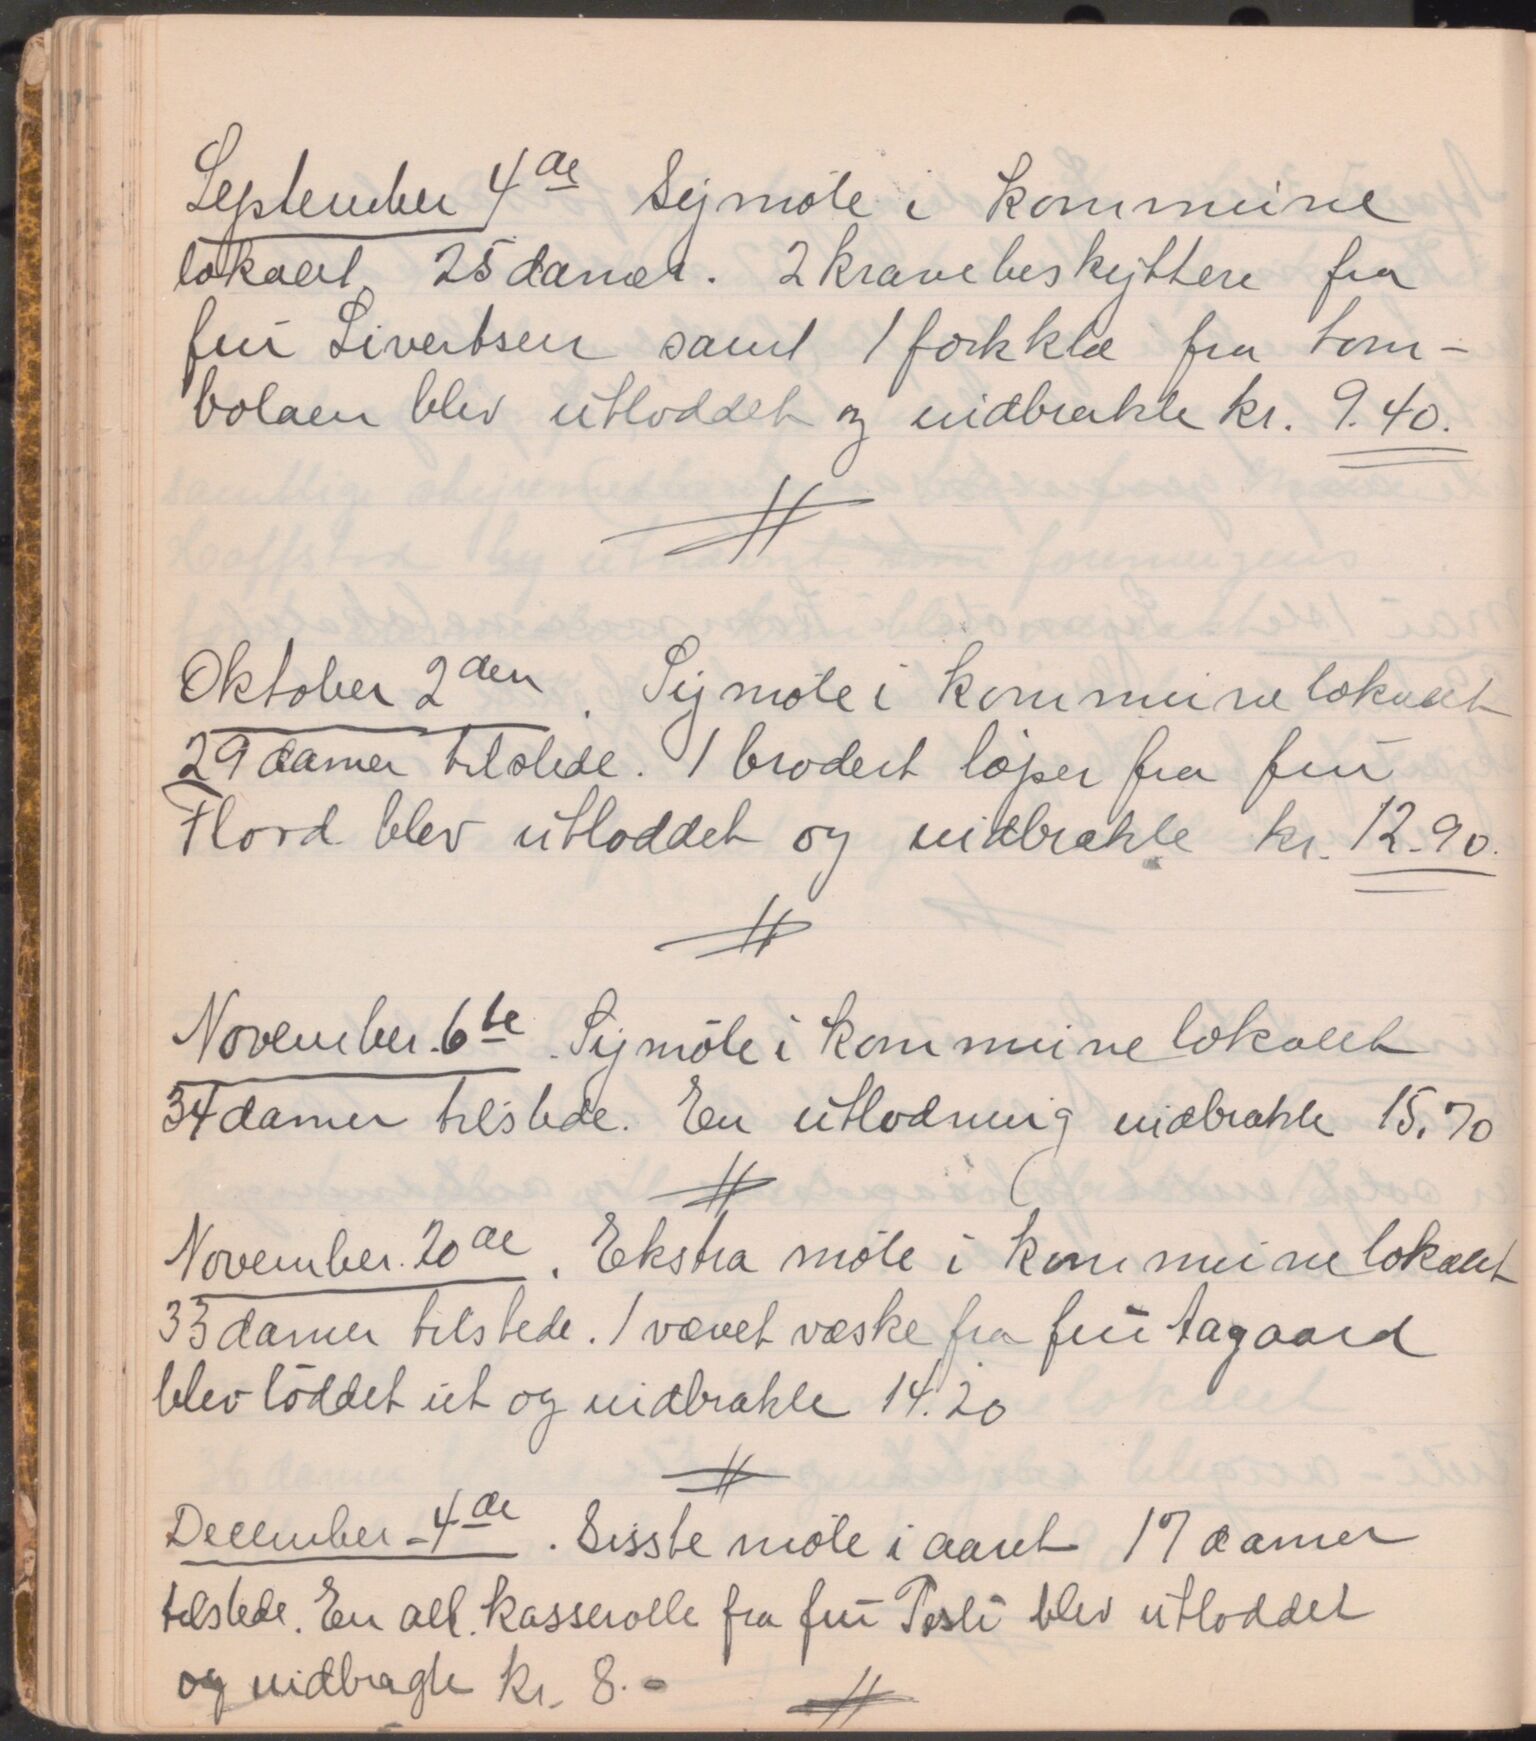 September 4de Symöte i kommune
lokalet 25 damer. 2 kravebeskyttere fra
fru Sivertsen samt 1 forkklæ fra tom-
bolaen blev utloddet og indbrakte kr. 9.40.
Oktober 2den. Symöte i kommunelokalet
29 damer tilstede. 1 brodert løper fra fru
Flord blev utloddet og indbrakte kr. 12.90.
November. 6te. Symöte i kommunelokalet
34 damer tilstede. En utlodning indbrakte 15.70
November. 20de. Ekstra möte i kommunelokalet
33 damer tilstede. 1 vævet væske fra fru Aagaard
blev loddet ut og indbrakte 14.20
December - 4de. Sisste möte i aaret 17 damer
tilstede. En all. kasserolle fra fru blev utloddet
og indbragte kr. 8.-